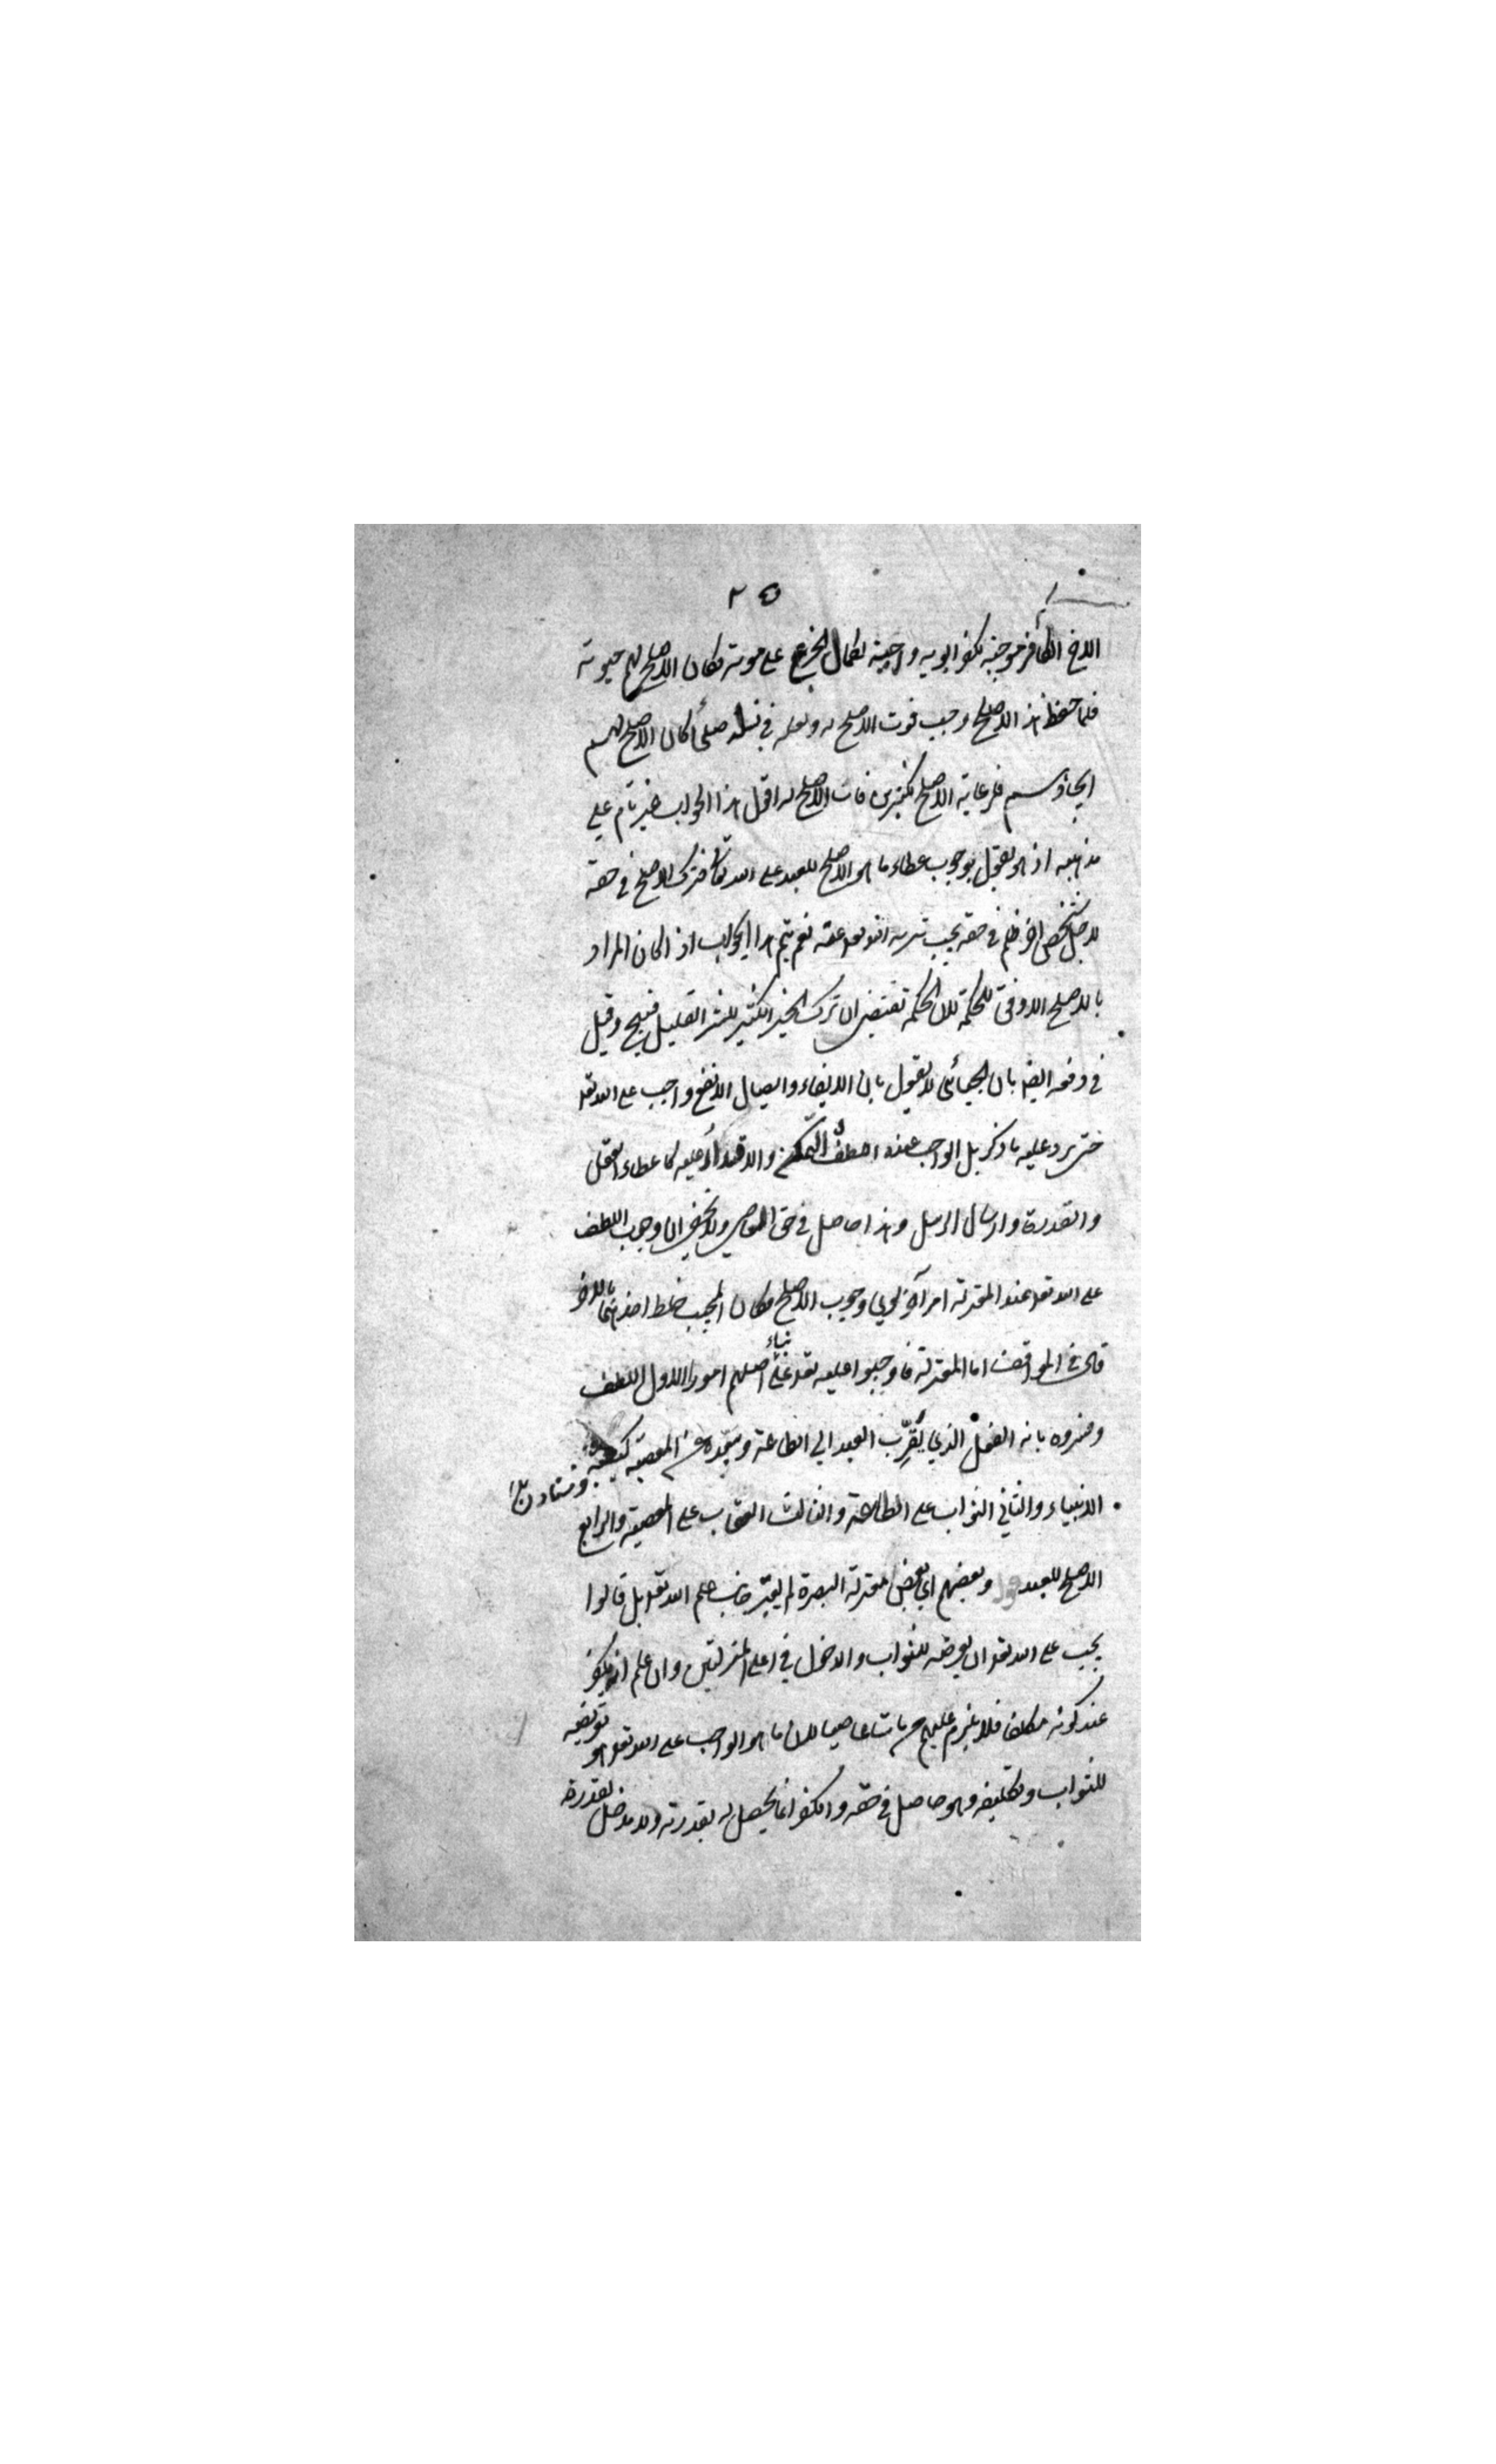 ٢٥
الاخ الكافر موجبة لكفر ابويه واخيه لكمال الجزع على موته فكان الاصلح لهم حيوته
فلما حفظ هذا الاصلح وجب فوت الاصلح له ولعله في نسله صلحاً كان الاصلح لهم
ايجادهم فلرعاية الاصلح لكثيرين فات الاصلح له اقول هذا الجواب غير تام على
مذهبه اذ هو يقول بوجوب عطاء ما هو الاصلح للعبد على الله تعالى فترك الاصلح في حقه
لاجل شخص اخر ظلم في حقه يجب تنزيه الله تعالى عنه نعم يتم هذا الجواب اذ لو كان المراد
بالاصلح الاوفق للحكمة لان الحكمة تقتضي ان ترك الخير الكثير للشر القليل قبيح وقيل
في دفعه ايضا بان الجبائي لا يقول بان الايفاء وايصال الانفع واجب على الله تعالى
حتى يرد عليه ما ذكر بل الواجب عنده اللطف التمكن والاقدار عليه كاعطاء العقل
والقدرة وارسال الرسل وهذا حاصل في حق العاصي ولا يخفى ان وجوب اللطف
على الله تعالى عند المعتزلة امر اخر سوى وجوب الاصلح فكان المجيب خلط احدهما بالاخر
قال في المواقف اما المعتزلة فاوجبوا عليه تعالى بناء على اصلهم امورا الاول اللطف
وفسروه بانه الفعل الذي يُقَرِّب العبد الى الطاعة ويبعده عن المعصية كبعثة
الانبياء والثاني الثواب على الطاعة والثالث العقاب على المعصية والرابع
الاصلح للعبد وبعضهم اي بعض معتزلة البصرة لم يعتبر جانب علم الله تعالى بل قالوا
يجب على الله تعالى ان يعرضه للثواب والدخول في اعلى المنزلتين وان علم انه يكفر
عند كونه مكلفا فلا يلزم عليهم من مات عاصيا لان ما هو الواجب على الله تعالى هو تعريضه
للثواب وتكليفه وهو حاصل في حقه والكفر انما يحصل له بقدرته ولا مدخل لقدرة